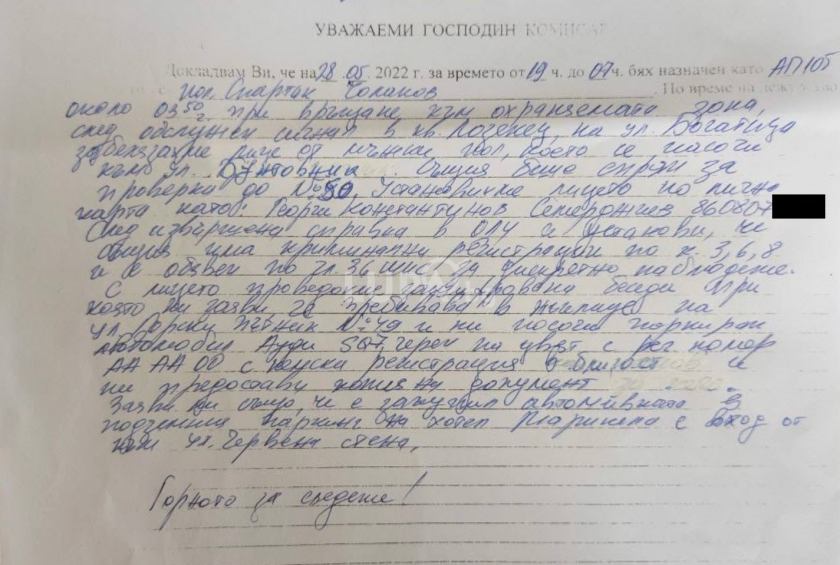 УВАЖАЕМИ ГОСПОДИН КОМИСАР
Докладвам Ви, че на 28.05.2022 г. за времето от 19 ч. до 07 ч. бях назначен като АП 105
с пол. Спартак Чолаков. По време на
около 03:50 г. при връщане към охраняемата зона,
след обслужен сигнал в кв. Лозенец, на ул. Богатица
забелязахме лице от мъжки пол, което се насочи
към ул. Бунтовник. Същия беше спрян за
проверка до № 50. Установихме лицето по лична
карта като: Георги Константинов Семерджиев 860807
След извършена справка в ОДЧ се установи, че
същия има криминални регистрации по к. 3, 6, 8
и е обявен по чл. 36 ШИС за дискретно наблюдение.
С лицето проведохме беседа при
която ни заяви, че пребивава в жилище на
ул. Горски пътник № 49 и ни посочи паркиран
автомобил Ауди SQ7 черен на цвят с рег номер
АА АА 00 с регистрация в близост и
ни предостави документ
Заяви ни също, че е автомивката в
подземния паркинг на хотел Маринела с вход от
към ул. Червена стена.
Горното за сведение!